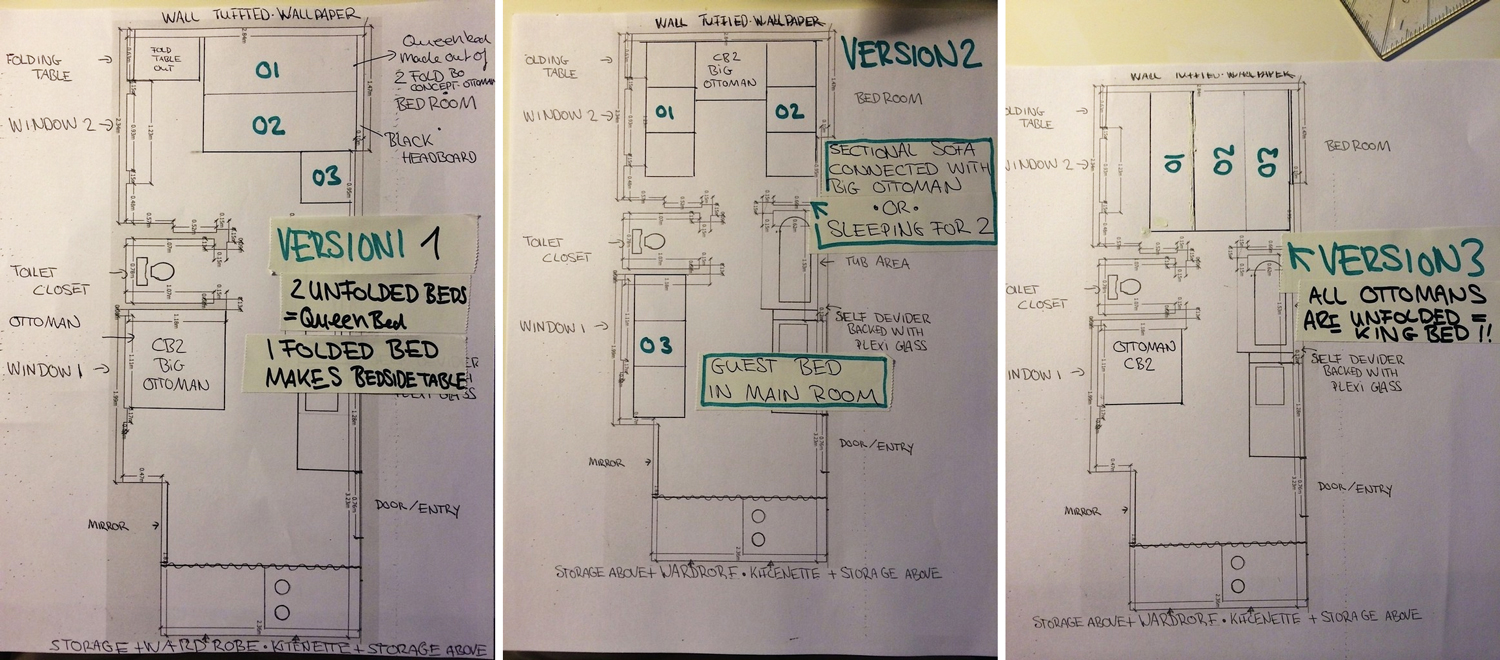 WALL TUFFTED-WALLPAPER
FOLDING
TABLE
FOLD
TABLE
OUT
01
02
03
Queen bed
made out of
2 FOLD BO
CONCEPT-OTTOMAN
BEDROOM
BLACK
HEADBOARD
WINDOW 2
TOILET
CLOSET
VERSION 1 1
2 UNFOLDED BEDS
=Queen Bed
1 FOLDED BED
MAKES BEDSIDETABLE
OTTOMAN
CB2
BIG
OTTOMAN
WINDOW 1
PLEXI GLASS
MIRROR
DOOR/ENTRY
STORAGE + WARDROBE · KITENETTE + STORAGE ABOVE
WALL TUFFTED-WALLPAPER
VERSION 2
OLDING
TABLE
CB2
BIG
OTTOMAN
01
02
BEDROOM
WINDOW 2
SECTIONAL SOFA
CONNECTED WITH
BIG OTTOMAN
·OR·
SLEEPING FOR 2
TOILET
CLOSET
TUB AREA
WINDOW 1
SELF DEVIDER
BACKED WITH
PLEXI GLASS
03
GUEST BED
IN MAIN ROOM
MIRROR
DOOR/ENTRY
STORAGE ABOVE + WARDROBE · KITCENETTE + STORAGE ABOVE
WALL TUFFTED-WALLPAPER
OLDING
TABLE
INDOW 2
01
02
03
BEDROOM
OILET
CLOSET
VERSION 3
ALL OTTOMANS
ARE UNFOLDED =
KING BED !!
OTTOMAN
CB2
INDOW 1
SELF DEVIDER
BACKED WITH
PLEXI GLASS
MIRROR
DOOR/ENTRY
STORAGE ABOVE + WARDROBE · KITCENETTE + STORAGE ABOVE